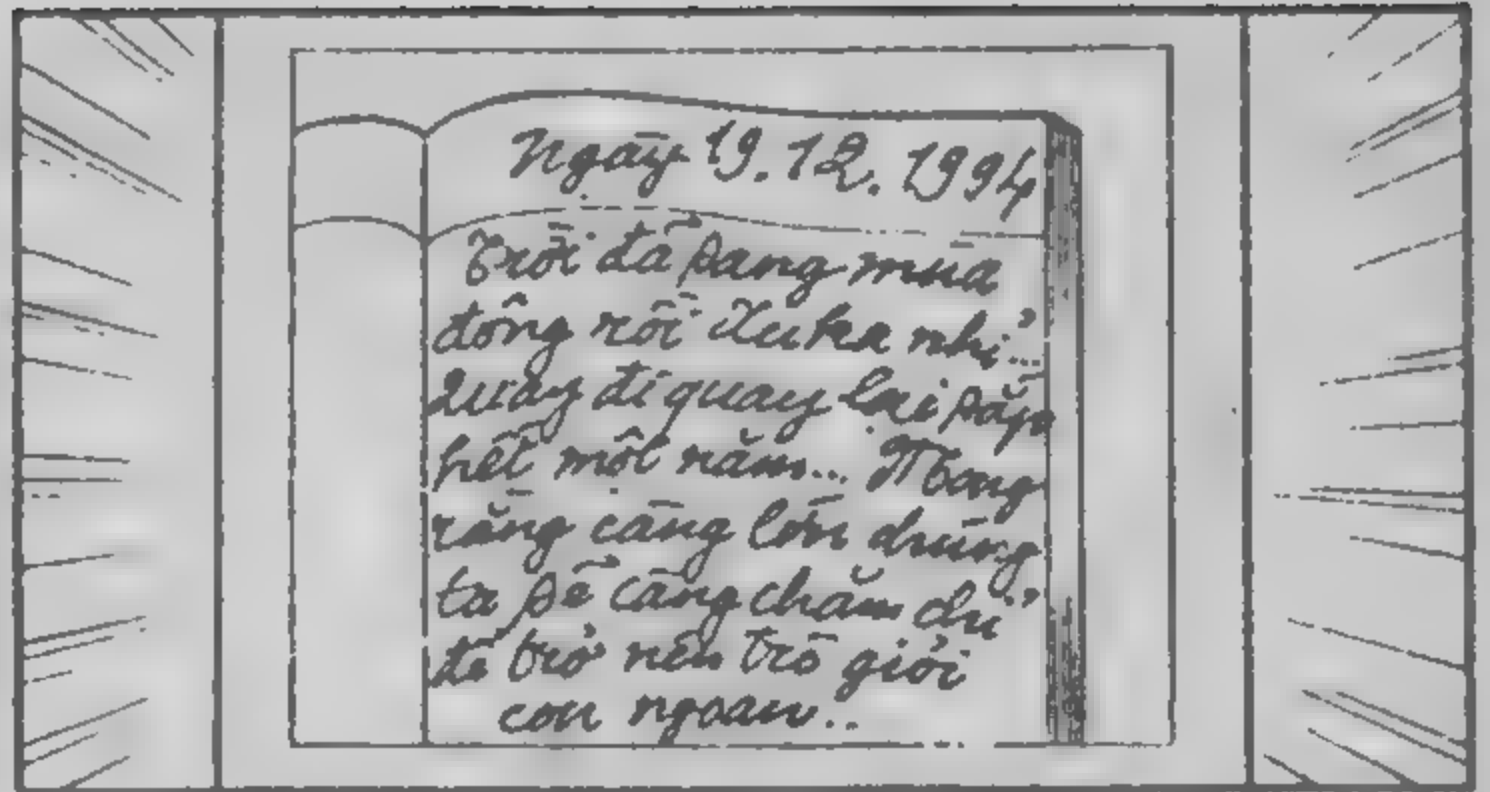 Ngày 19.12.1994
Trời đã sang mùa
đông rồi Xuka nhỉ...
Quay đi quay lại sắp
hết một năm... Mong
rằng càng lớn chúng
ta sẽ càng chăm chỉ
để trở nên trò giỏi
con ngoan...